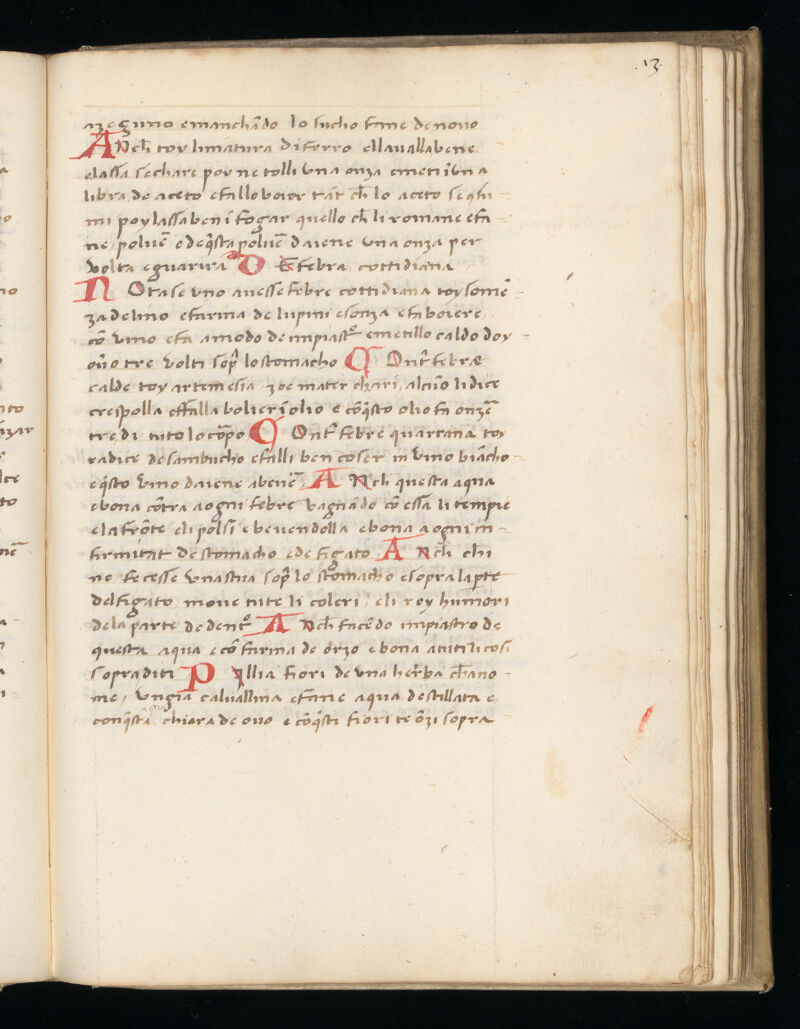 .13.
azeguno e manchādo lo sucho fane de novo
ANch toy limatura di ferro ellavalla bene
elassa sechare poy ne tolli una onza e meti ī un a
libra de aceto e fallo boier tāt ch lo aceto se
mi poy lassa ben ī fogar quello ch li romane e fa
ne polvē e de q̄sta polvē da iene una onza per
volta e guarira DE febra cottidiana
NOta se uno avesse febre cottidiana toy somē
za de lino e farina de lupini e sonza e fa boiere
cō vino e fa a modo de impiastr° e metillo caldo doy
ov̄o tre volti sop̄ lo stomacho COnt̄ febræ
calde toy artemesia zoe mater chari, alcūo li dice
crespolla e ffalla bolier ī olio e cōq̄sto olio fa onzē
tre di tuto lo cōpo COnt̄ febre quarcana toy
radice de sambucho e falli ben coser in vino biācho
e q̄sto vino da iene a bevē ANch questa aqua
e bona cōtra a ogni febre bagnādo cō essa li tempie
e la frōte e li polsi e bevendolla e bona a ogni in
firmitat de stomacho e de figato ANch chi
ne fecesse una stua sop̄ lo stomacho e sopra la p̄te
del figato move tute li coleri e li roy humori
de la parte de dent° ANch facēdo impiastro de
questa aqua e cō farina de orzo e bona a tuti li cosi
sopraditi PIllia fiori de una herba ch āno
me, ungia cavallina e fane aqua destillata e
con q̄sta aqua chiara de ovo e cōq̄sti fiori te ōzi sopra